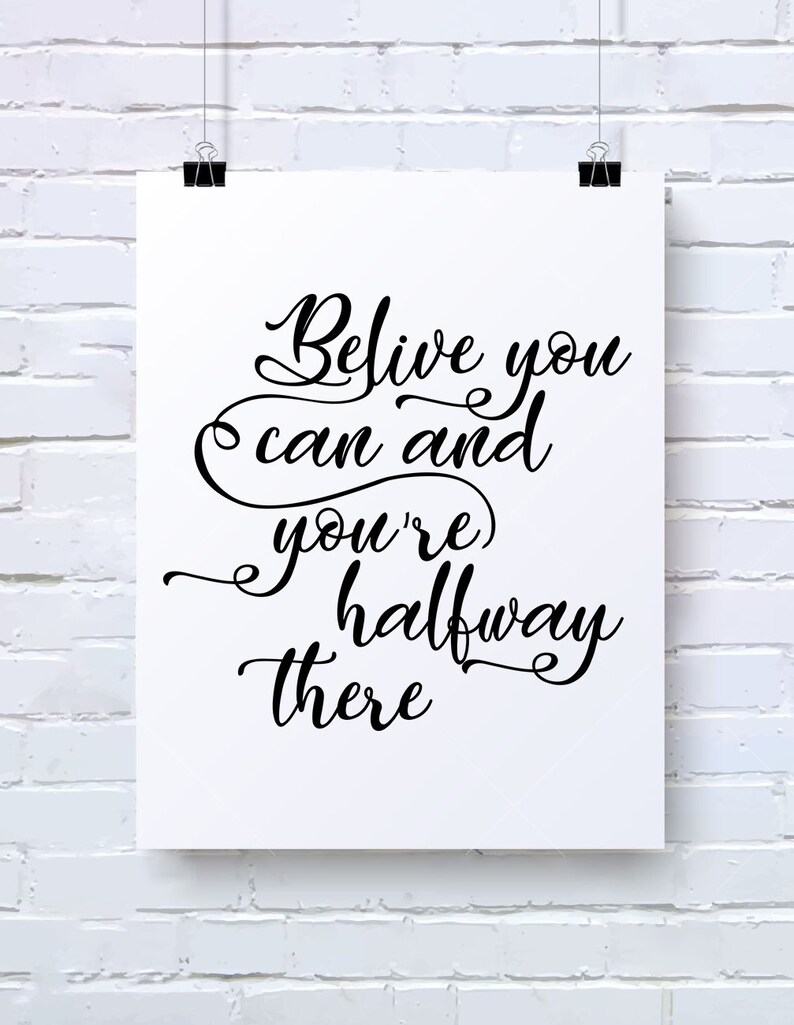 Belive you
can and
you're
halfway
there